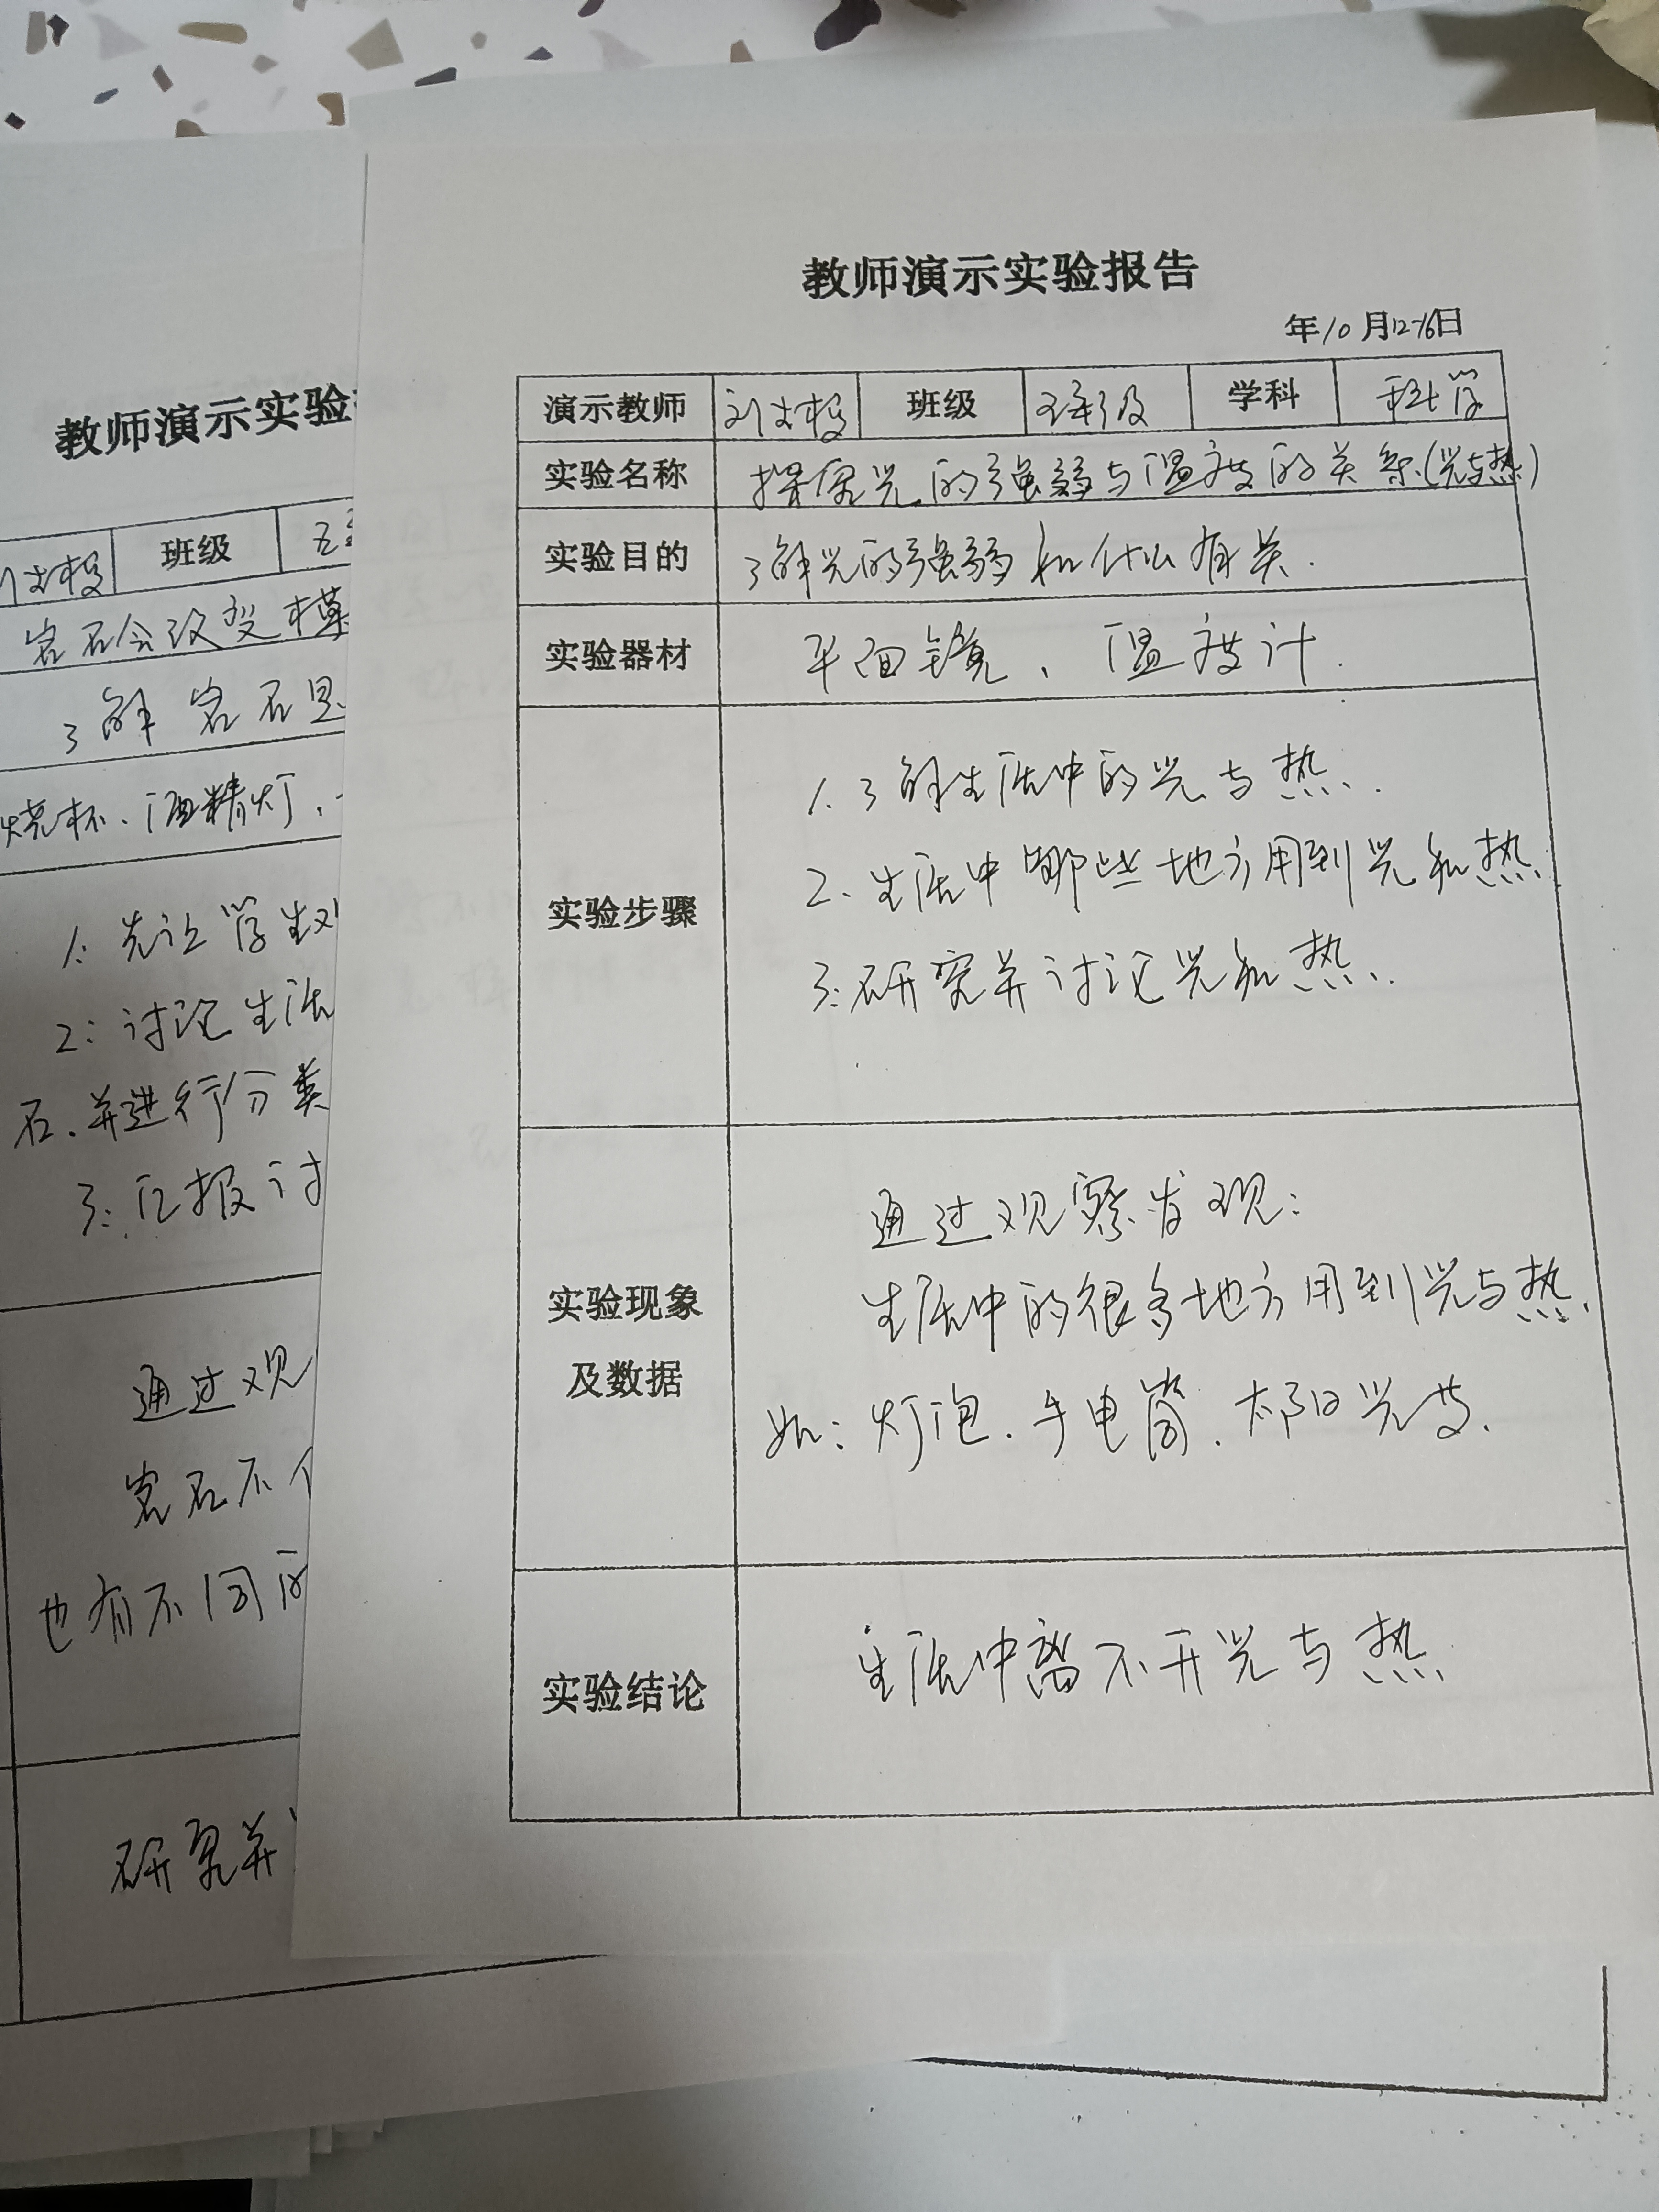 教师演示实验
班级
岩石会改变模
了解岩石是
烧杯、酒精灯、
1: 先让学生观
2: 讨论生活
石、并进行分类
3: 汇报讨
通过观
岩石不
也有不同的
研究并
教师演示实验报告
年10月12-16日
演示教师 班级 五年级 学科 科学
实验名称 探究光的强弱与温度的关系(光与热)
实验目的 了解光的强弱和什么有关.
实验器材 平面镜、温度计.
实验步骤
1. 了解生活中的光与热.
2、生活中哪些地方用到光和热.
3: 研究并讨论光和热.
实验现象
及数据
通过观察发现:
生活中的很多地方用到光与热.
如: 灯泡、手电筒、太阳光等.
实验结论
生活中离不开光与热